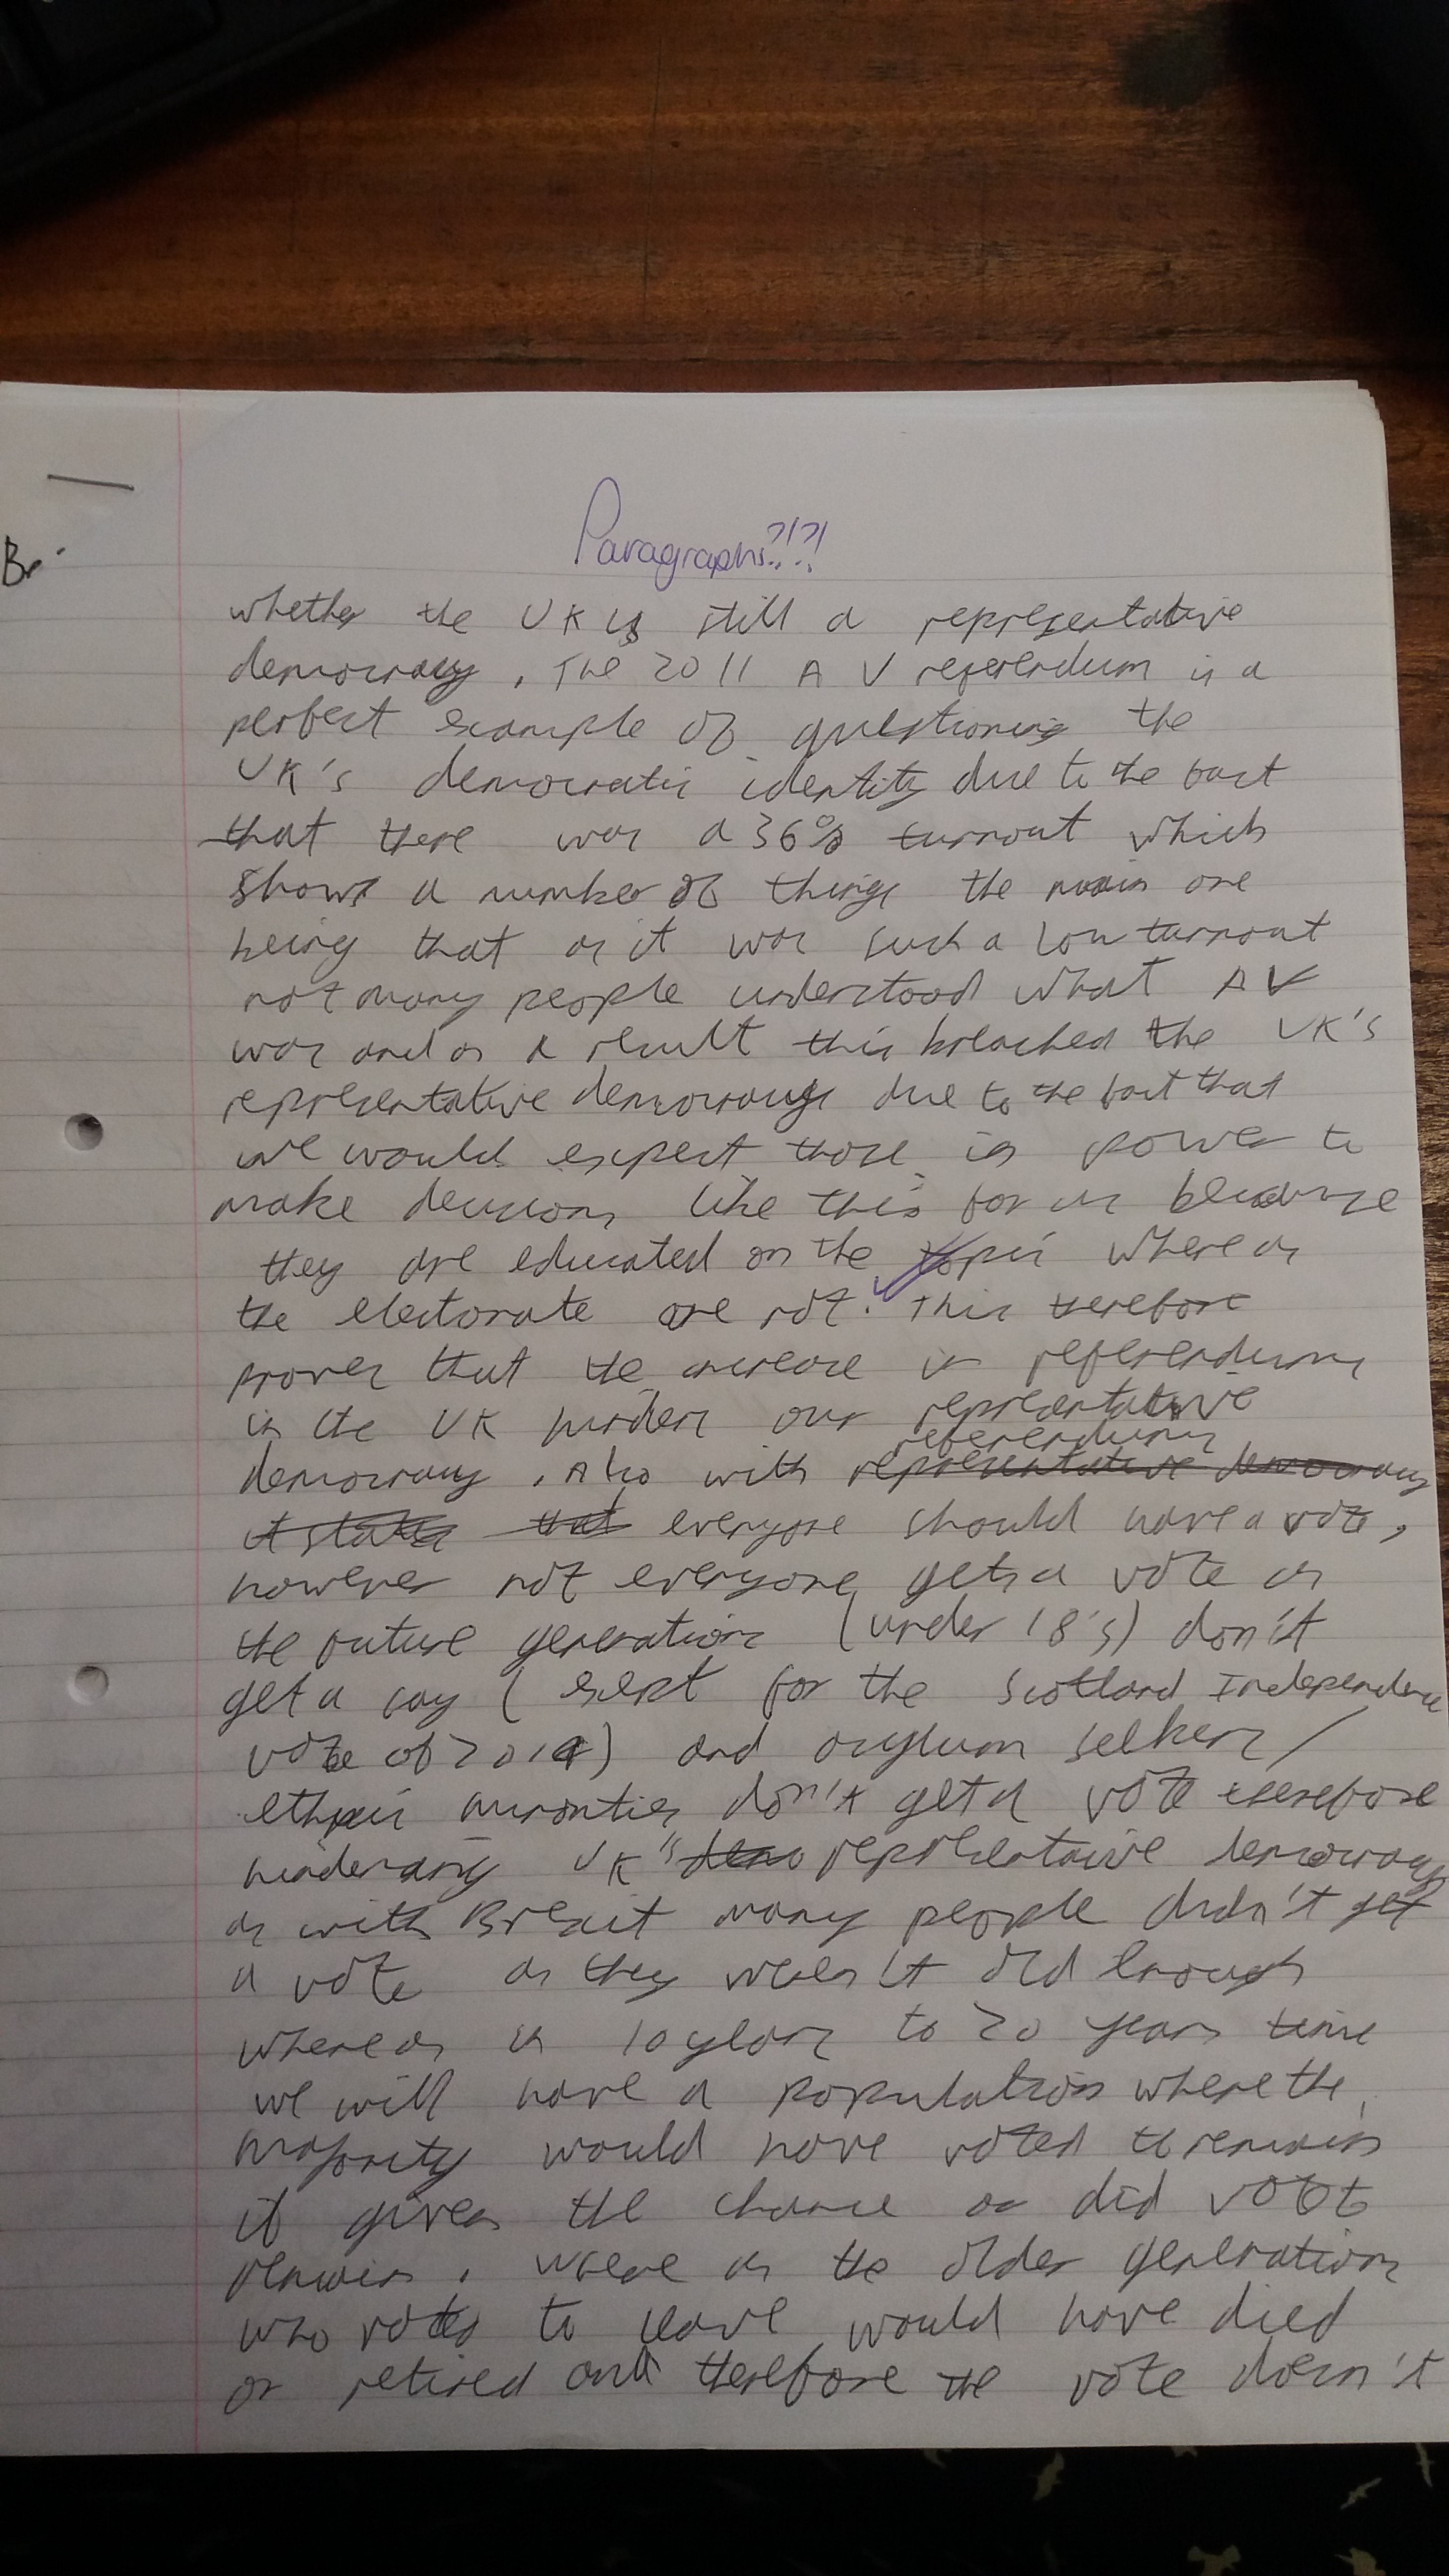 Br
Paragraphs?!?!
whether the UK is still a representative
democracy. The 2011 AV referendum is a
perfect example of questioning the
UK's democratic identity due to the fact
that there was a 36% turnout which
shows a number of things the main one
being that as it was such a low turnout
not many people understood what AV
was and as a result this breached the UK's
representative democracy due to the fact that
we would expect those in power to
make decisions like this for us because
they are educated on the topic where as
the electorate are not. This therefore
proves that the increase in referendums
in the UK hinders our representative
democracy. Also with referendums representative democracy
it states that everyone should have a vote,
however not everyone gets a vote as
the future generations (under 18's) don't
get a say (exept for the Scotland Independence
vote of 2014) and asylum seekers/
ethnic minorities don't get a vote therefore
hindering UK's demo representative democracy
as with Brexit many people didn't get
a vote as they weren't old enough
where as in 10 years to 20 years time
we will have a population where the
majority would have voted to remain
if given the chance or did vote
remain. where as the older generations
who voted to leave would have died
or retired and therefore the vote doesn't